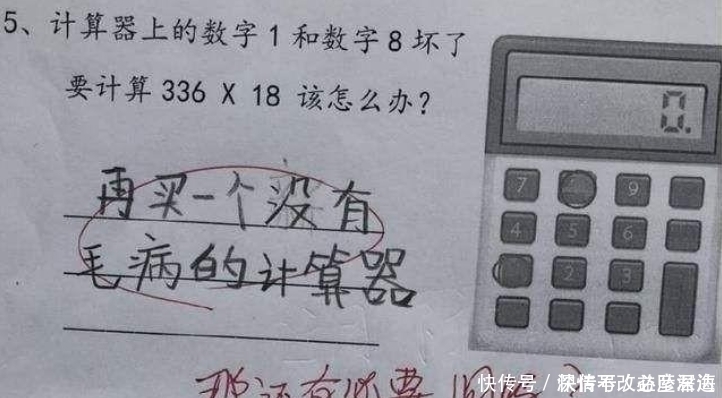 5、计算器上的数字1和数字8坏了
要计算 336 X 18 该怎么办?
再买一个没有
毛病的计算器
0.
7
9
4
5
6
2
3
那还有必要
快传号 /